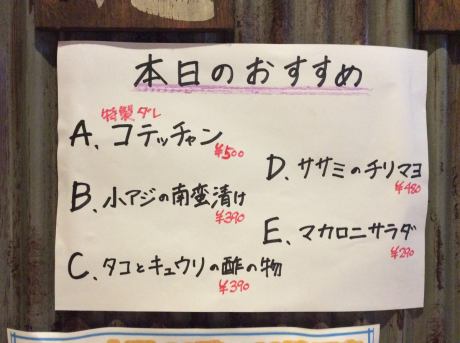 本日のおすすめ
特製ダレ
A、コテッチャン
¥500
B、小アジの南蛮漬け
¥390
C、タコとキュウリの酢の物
¥390
D、ササミのチリマヨ
¥480
E、マカロニサラダ
¥290